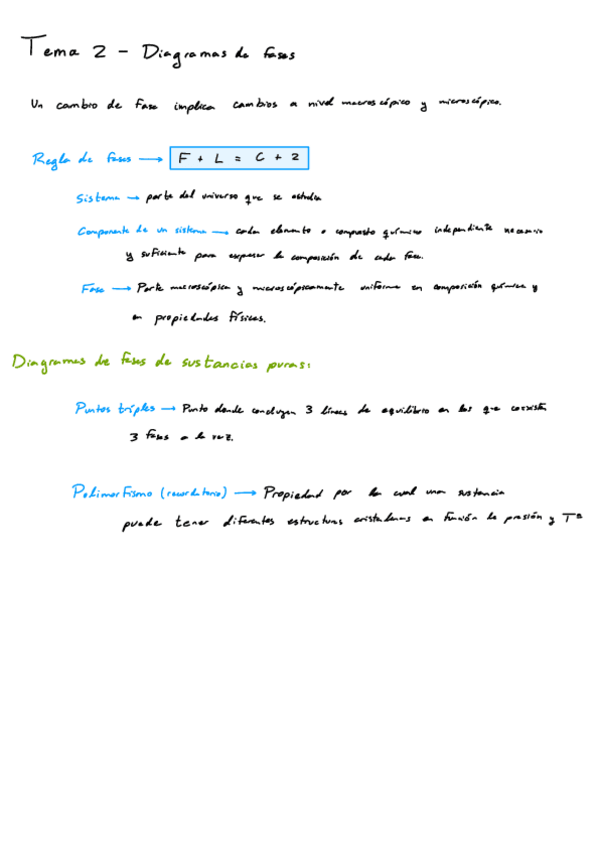 Tema 2 - Diagramas de fases
Un cambio de fase implica cambios a nivel macroscópico y microscópico.
Regla de fases → F + L = C + 2
Sistema → parte del universo que se estudia
Componente de un sistema → cada elemento o compuesto químico independiente necesario
y suficiente para expresar la composición de cada fase.
Fase → Parte macroscópica y microscópicamente uniforme en composición química y
en propiedades físicas.
Diagramas de fases de sustancias puras:
Puntos triples → Punto donde concluyen 3 líneas de equilibrio en los que coexisten
3 fases a la vez.
Polimorfismo (recordatorio) → Propiedad por la cual una sustancia
puede tener diferentes estructuras cristalinas en función la presión y Tª